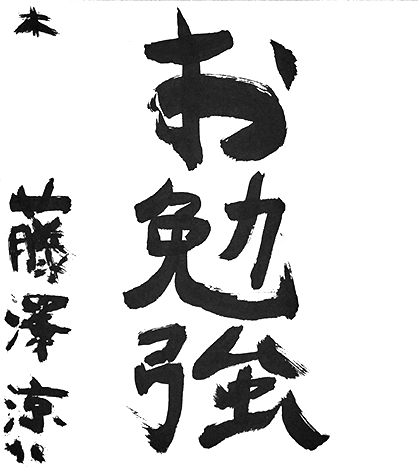 お勉強
木
藤澤涼